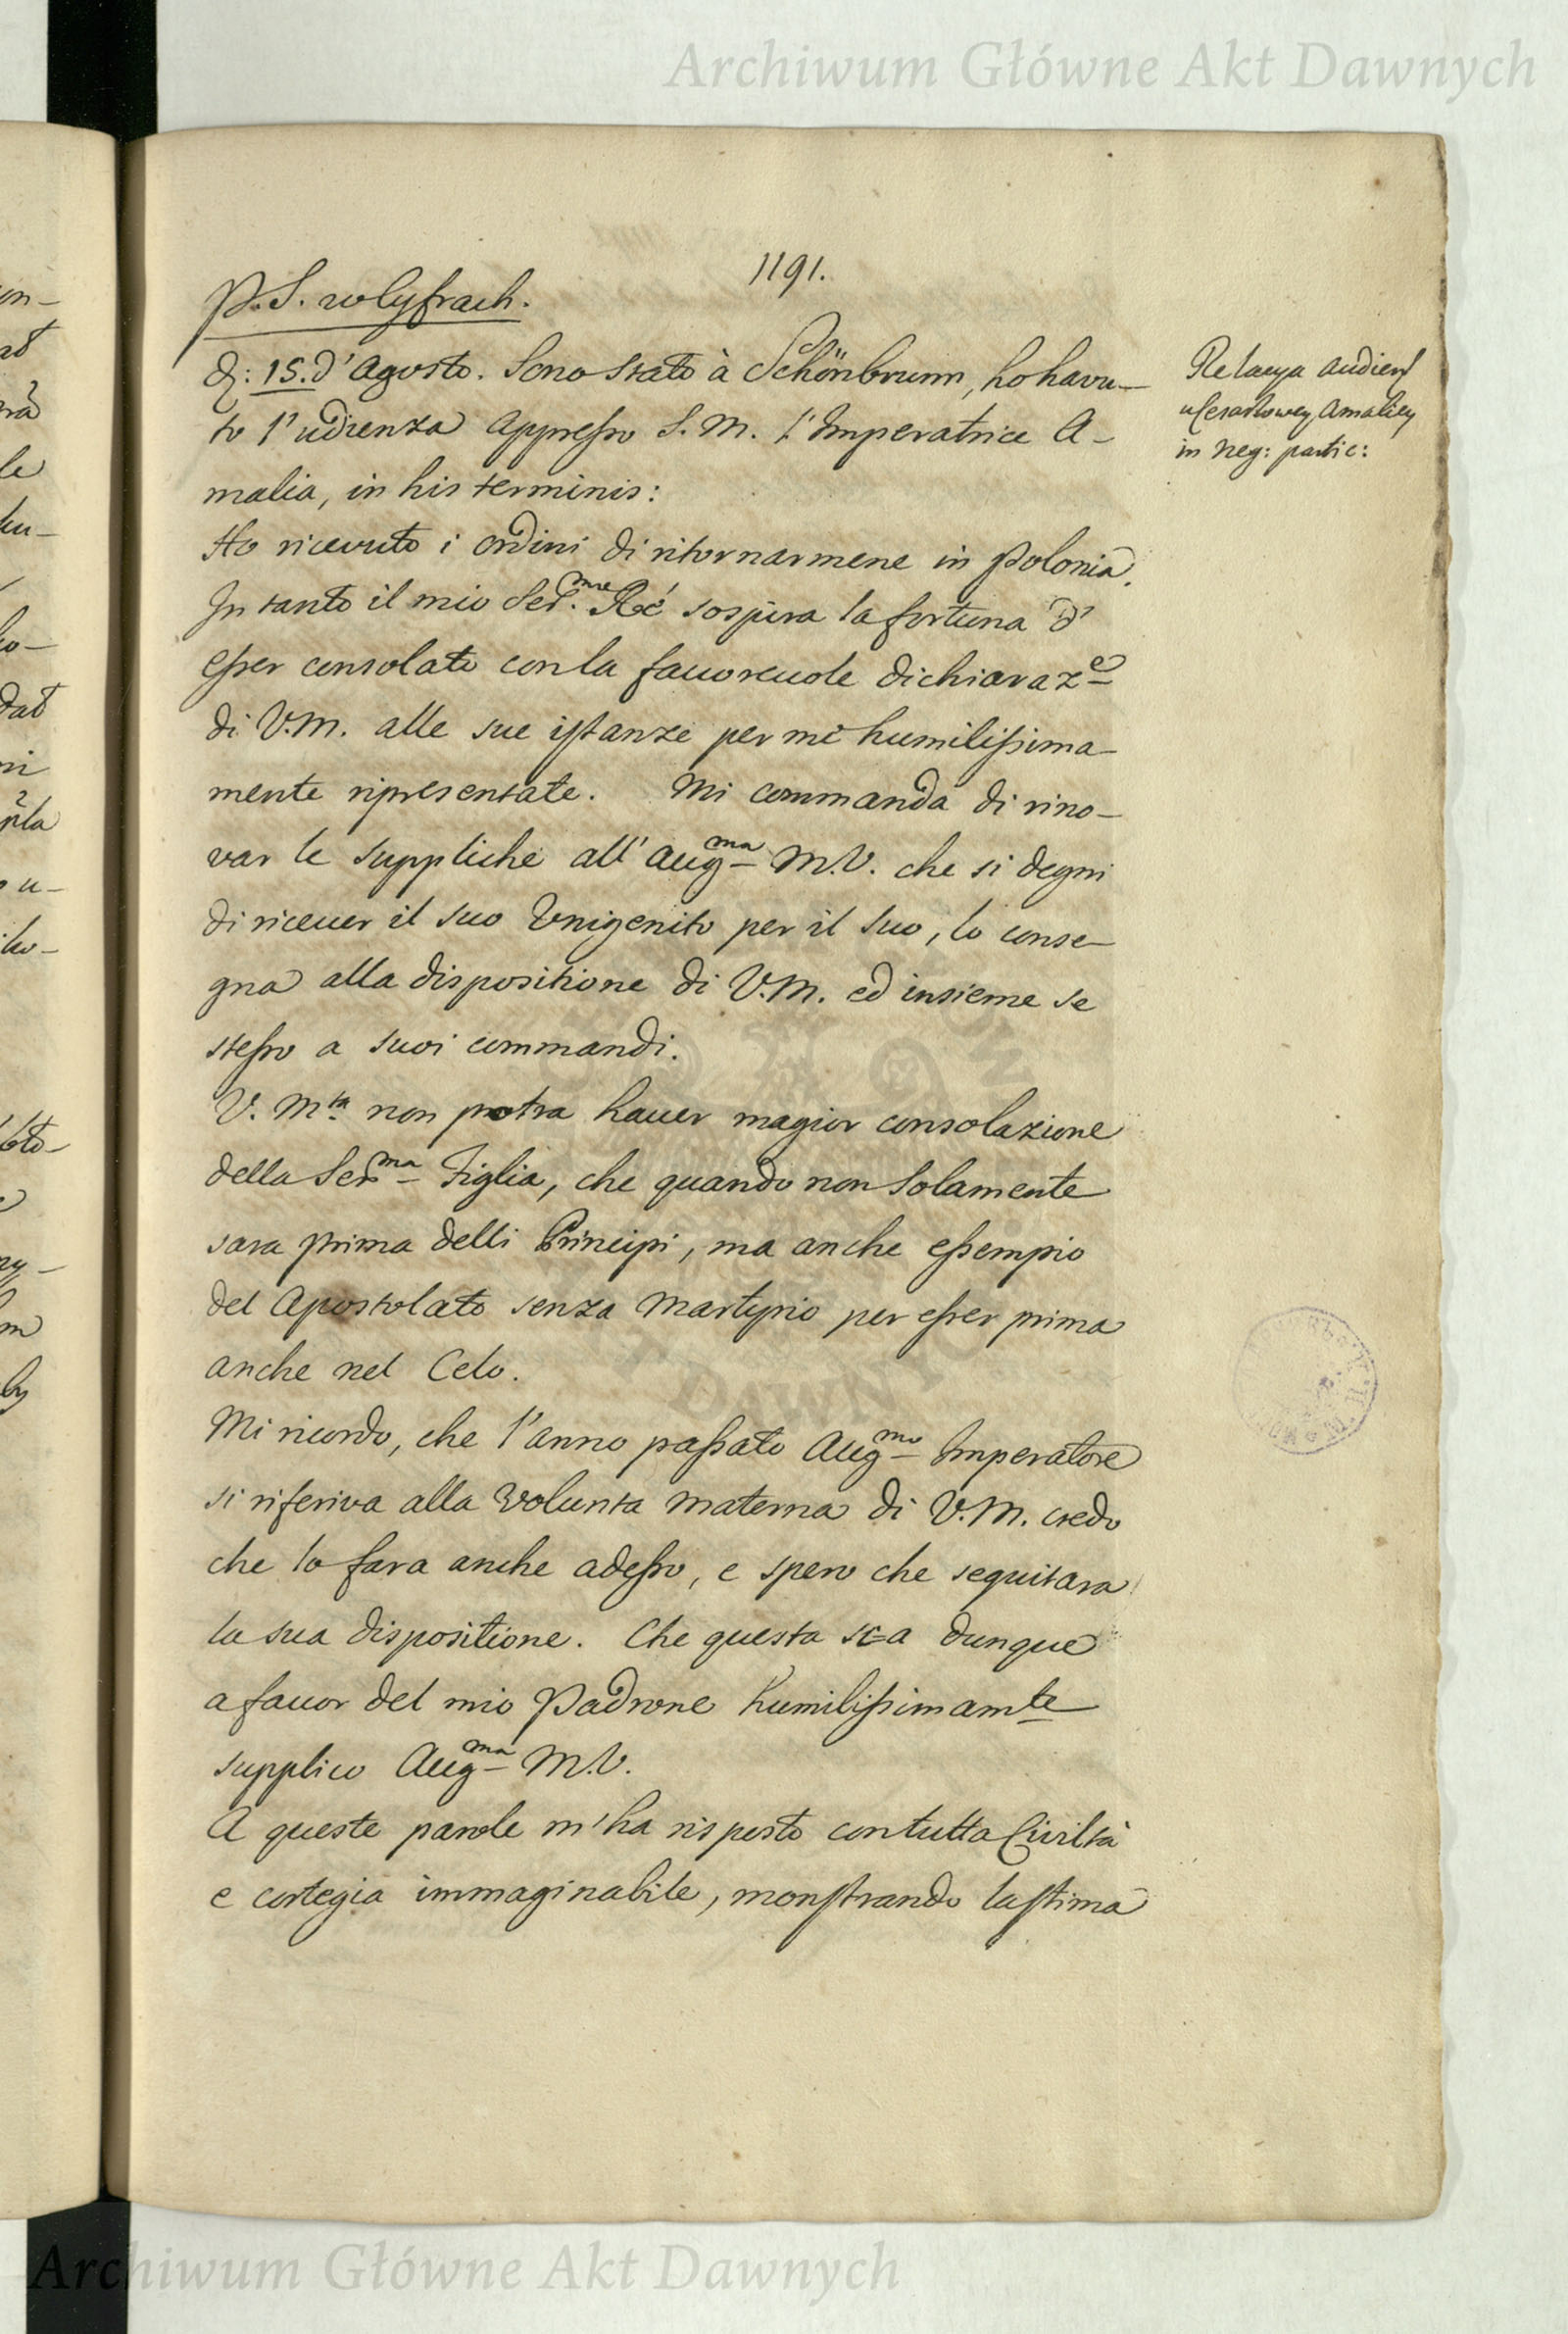 Archiwum Główne Akt Dawnych
1191.
P.S. w Cyfrach.
d: 15. d' Agosto. Sono stato à Schönbrunn, ho havu-
to l'udienza appresso S. M. l'Imperatrice A-
malia, in his terminis:
Relacya audiens
u Cesarzowey Amaliey
in neg: partic:
Ho ricevuto i ordini di ritornarmene in Polonia.
In tanto il mio Ser.me Ré sospira la fortuna d'
esser consolato con la fauoreuole dichiaraz.e
di V.M. alle sue istanze per me humilissima-
mente ripresentate. Mi commanda di rino-
var le suppliche all' Aug.ma M.V. che si degni
di riceuer il suo Unigenito per il suo, lo conse-
gna alla dispositione di V.M. ed insieme se
stesso a suoi commandi.
V. M.ta non potra hauer magior consolazione
della Ser.ma Figlia, che quando non solamente
sara prima delli Principi, ma anche essempio
del Apostolato senza Martyrio per esser prima
anche nel Celo.
Mi ricordo, che l'anno passato Aug.mo Imperatore
si riferiva alla volunta materna di V.M. credo
che lo fara anche adesso, e spero che sequitara
la sua dispositione. Che questa sia dunque
a fauor del mio Padrone humilissimam.te
supplico Aug.ma M.V.
A queste parole m'ha risposto con tutta Civiltà
e cortegia immaginabile, monstrando lastima
Archiwum Główne Akt Dawnych